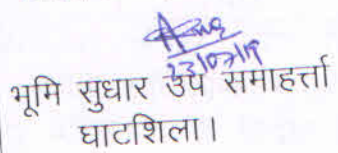 23/07/19
भूमि सुधार उप समाहर्त्ता
घाटशिला।